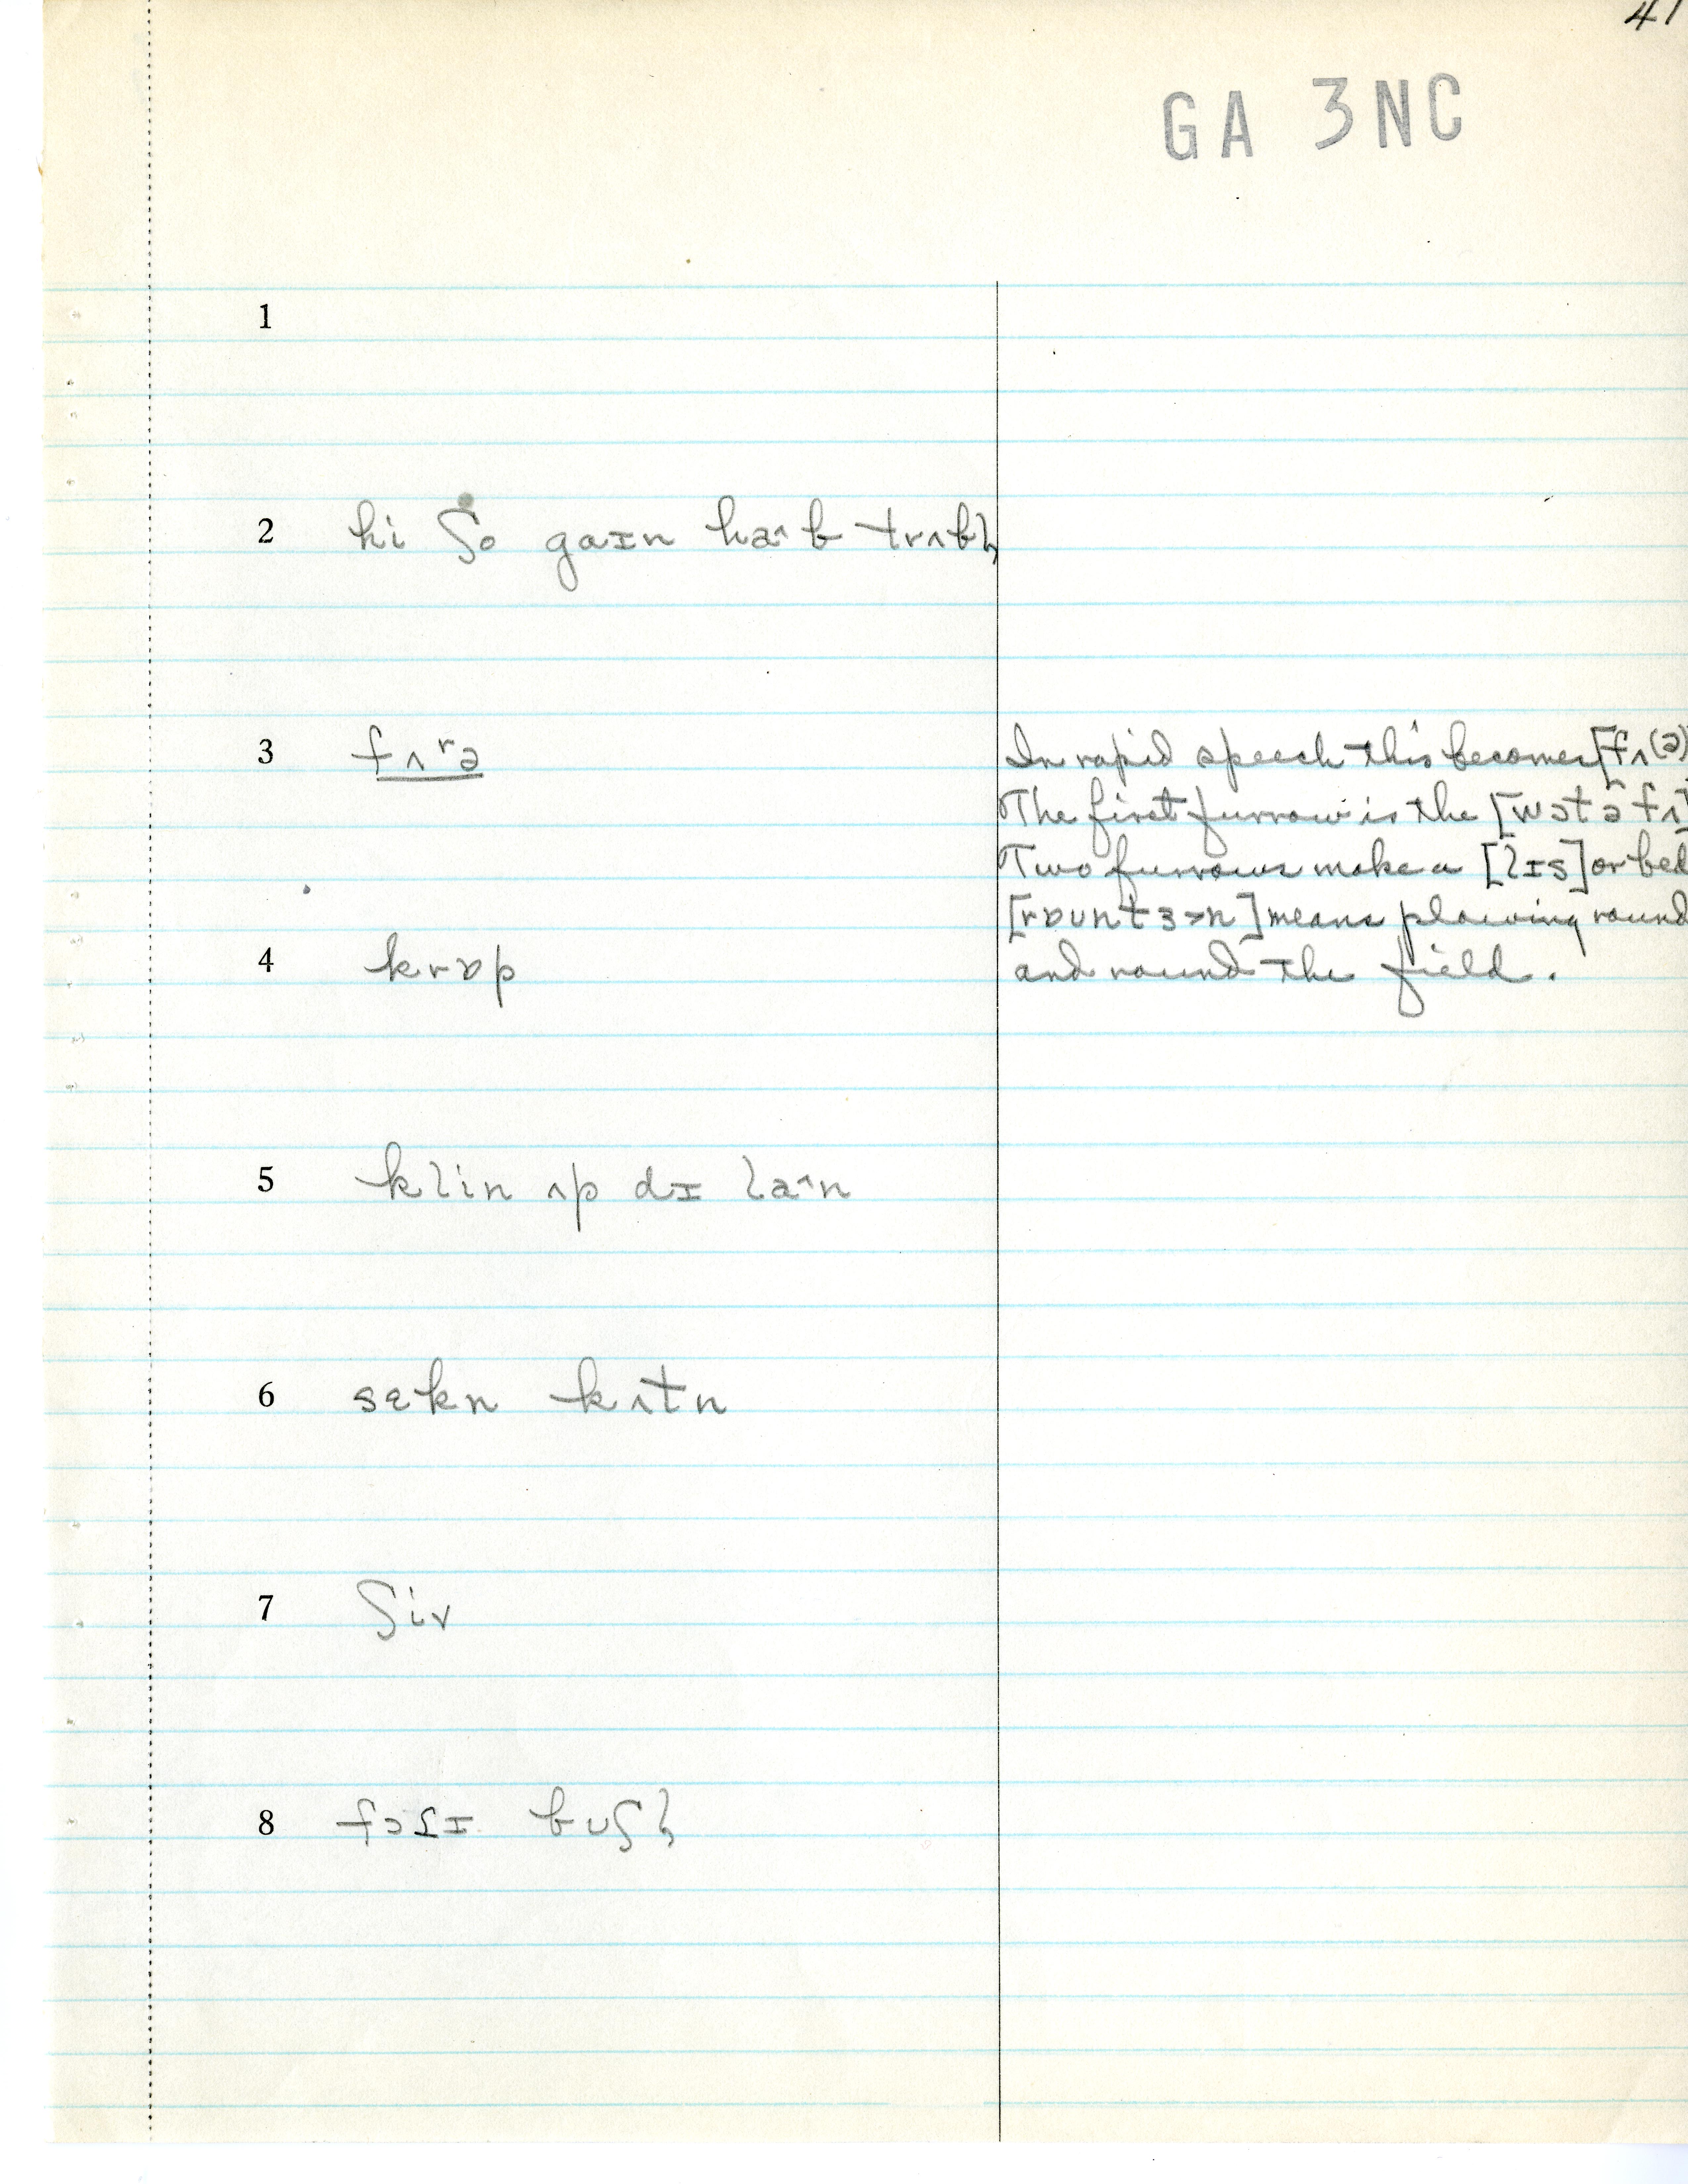 41
GA 3NC
1
2 hi ʃo gaɪn haˆb trʌbl̩
3 fʌʳə
In rapid speech this becomes [fʌ(ə)
The first furrow is the [wɔtə fʌ]
Two furrows make a [lɪs] or bed
[rɒuntɜ>n] means plowing round
4 krɒp
and round the field.
5 klin ʌp dɪ laˆn
6 sɛkn kʌtn
7 ʃiv
8 fɔɾɪ buʃl̩